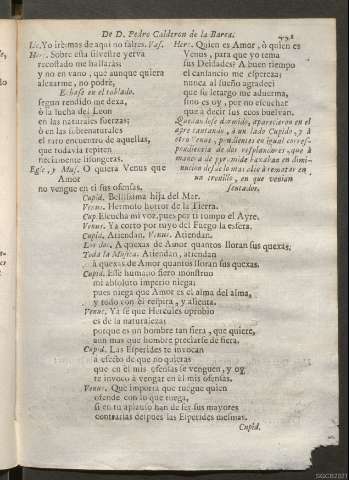 De D. Pedro Calderon de la Barca.
Lic. Yo irèmas de aqui no faltes. Vas.
Her. Sobre esta silvestre yerva
recostado me hallaràs;
y no en vano, que aunque quiera
alexarme, no podrè,
Echase en el tablado.
segun rendido me dexa,
ò la lucha del Leon
en las naturales fuerzas;
ò en las sobrenaturales
el raro encuentro de aquellas,
que todavia repiten
neciamente lisongeras.
Egle, y Mus. O quiera Venus que
Amor
no vengue en ti sus ofensas.
Herc. Quien es Amor, ò quien es
Venus, para que yo tema
sus Deidades? A buen tiempo
el cansancio me espereza;
nunca al sueño agradeci
que su letargo me aduerma,
sino es oy, por no escuchar
que à decir sus ecos buelvan.
Quedase dormido, aparecieron en el
ayre cantando, à un lado Cupido, y à
otro Venus, pendientes en igual corres-
pondencia de dos resplandores, que à
manera de pyramide baxaban en dimi-
nucion desde lo mas alto à rematar en
un tronillo, en que venian
sentados.
Cupid. Bellissima hija del Mar.
Venus. Hermoso horror de la Tierra.
Cup. Escucha mi voz, pues por ti rompo el Ayre.
Venus. Ya corto por tuyo del Fuego la esfera.
Cupid. Atiendan. Venus. Atiendan.
Los dos. A quexas de Amor quantos lloran sus quexas.
Toda la Musica. Atiendan, atiendan
à quexas de Amor quantos lloran sus quexas.
Cupid. Esse humano fiero monstruo
mi absoluto imperio niega;
pues niega que Amor es el alma del alma,
y todo con èl respira, y alienta.
Venus. Ya sè que Hercules oprobio
es de la naturaleza;
porque es un hombre tan fiera, que quiere,
aun mas que hombre preciarse de fiera.
Cupid. Las Esperides te invocan
à efecto de que no quieras
que en èl mis ofensas se venguen, y oy
te invoco à vengar en èl mis ofensas.
Venus. Què importa que ruegue quien
ofende con lo que ruega,
si en tu aplauso han de ser sus mayores
contrarias despues las Esperides mesmas.
Cupid.
SGCB2821